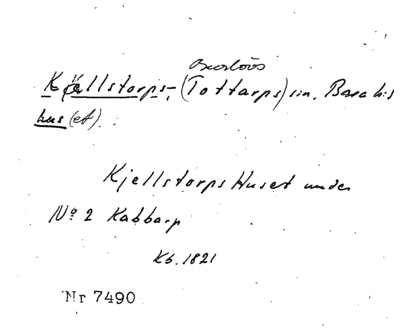 Burlövs
Källstorps- (Tottarps) sn. Bara h:s
hus(et).
Kjellstorps Huset under
No 2 Kabbarp
Kb. 1821
Nr 7490